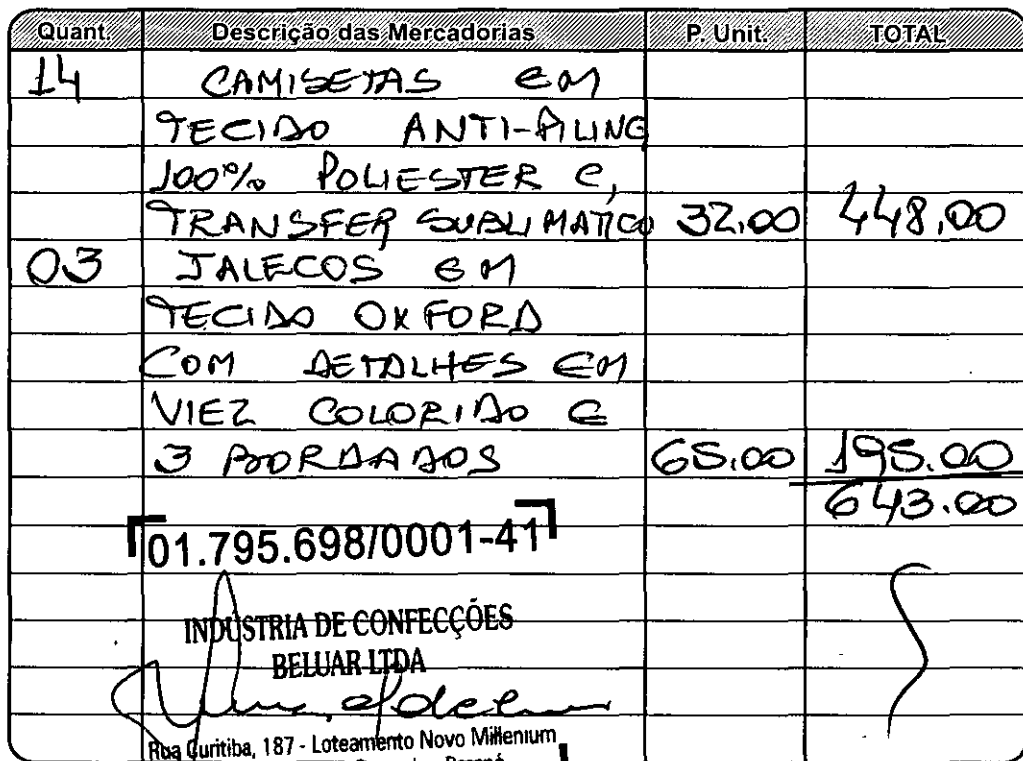 Quant. Descrição das Mercadorias P. Unit. TOTAL
14 CAMISETAS EM
TECIDO ANTI-PILING
100% POLIESTER C,
TRANSFER SUBLIMATICO 32,00 448,00
03 JALECOS EM
TECIDO OXFORD
COM DETALHES EM
VIEZ COLORIDO E
3 BORDADOS 65,00 195.00
643.00
01.795.698/0001-41
INDUSTRIA DE CONFECÇÕES
BELUAR LTDA
Rua Curitiba, 187 - Loteamento Novo Millenium